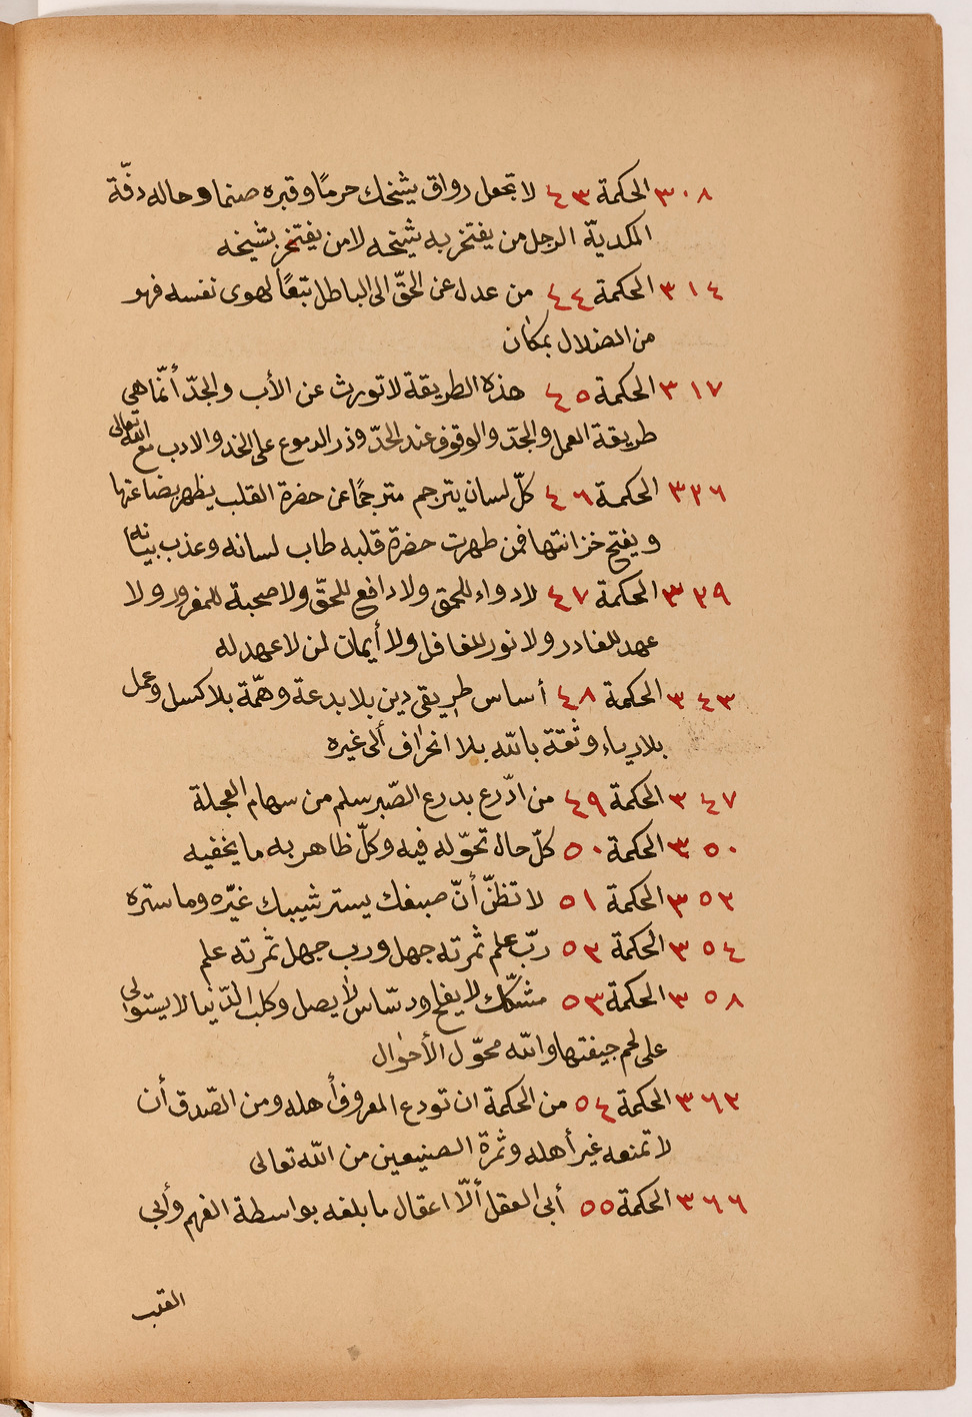 ٣٠٨ الحكمة ٤٣ لا تجعل رواق شيخك حرمًا وقبره صنما وحاله دفّة
المكديّة الرجل من يفتخر به شيخه لا من يفتخر بشيخه
٣١٤ الحكمة ٤٤ من عدل عن الحقّ الى الباطل تبعًا لهوى نفسه فهو
من الضلال بمكان
٣١٧ الحكمة ٤٥ هذه الطريقة لا تورث عن الأب والجدّ أنّما هي
طريقة العمل والجدّ والوقوف عند الحدّ وذر الدموع على الخد والادب مع الله تعالى
٣٢٦ الحكمة ٤٦ كلّ لسان يترجم مترجمًا عن حضرة القلب يظهر بضاعتها
ويفتح خزانتها فمن طهرت حضرة قلبه طاب لسانه وعذب بيانه
٣٢٩ الحكمة ٤٧ لا دواء للحمق ولا دافع للحقّ ولا صحبة للمغرور ولا
عهد للغادر ولا نور للغافل ولا أيمان لمن لا عهد له
٣٤٣ الحكمة ٤٨ أساس طريقى دين بلا بدعة وهمّة بلا كسل وعمل
بلا رياء وثقة بالله بلا انحراف ألى غيره
٣٤٧ الحكمة ٤٩ من ادّرع بدرع الصّبر سلم من سهام العجلة
٣٥٠ الحكمة ٥٠ كلّ حال تحوّله فيه وكلّ ظاهر به ما يخفيه
٣٥٣ الحكمة ٥١ لا تظنّ أنّ صبغك يستر شيبك غيّره وما ستره
٣٥٤ الحكمة ٥٢ ربّ علم ثمرته جهل ورب جهل ثمرته علم
٣٥٨ الحكمة ٥٣ مشكّك لا يفلح ودسّاس لا يصل وكلب الدّنيا لا يستولى
على لحم جيفتها والله محوّل الأحوال
٣٦٢ الحكمة ٥٤ من الحكمة ان تودع المعروف أهله ومن الصّدق أن
لا تمنعه غير أهله وثمرة الصنيعين من الله تعالى
٣٦٦ الحكمة ٥٥ أبى العقل ألّا اعقال ما بلغه بواسطة الفهم وأبى
القلب